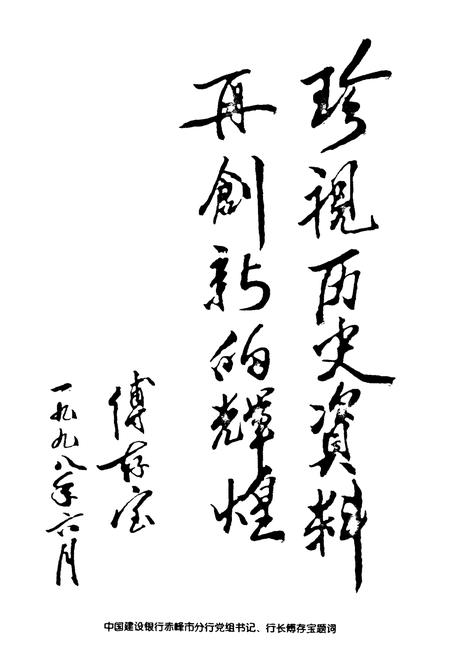 珍視历史資料
再創新的輝煌
傅存宝
一九九八年六月
中国建设银行赤峰市分行党组书记、行长傅存宝题词